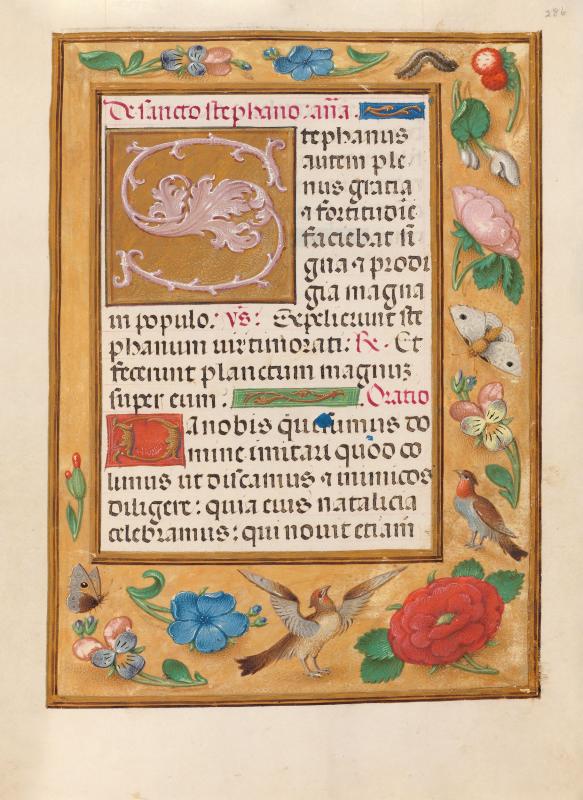 286
De sancto stephano. an̄a.
Stephanus
autem ple
nus gracia
⁊ fortitudīe
faciebat si
gna ⁊ prodi
gia magna
in populo. v̄s: Sepelierunt ste
phanum viri timorati: R̄. Et
fecerunt planctum magnum
super eum. Oratio
Da nobis quesumus do
mine imitari quod co
limus ut discamus ⁊ inimicos
diligere: quia eius natalicia
celebramus: qui novit etiam